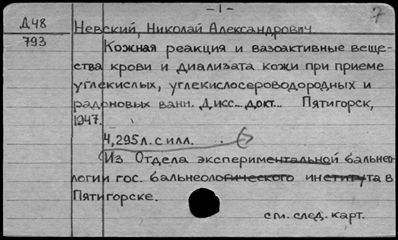 -1-
7
Д48
793
Невский, Николай Александрович
Кожная реакция и вазоактивные веще-
ства крови и диализата кожи при приеме
углекислых, углекислосероводородных и
радоновых ванн. Дисс... докт... Пятигорск,
1947.
4,295 л. с илл.
Из Отдела экспериментальной бальнео-
логии гос. бальнеологического института в
Пятигорске.
см. след. карт.